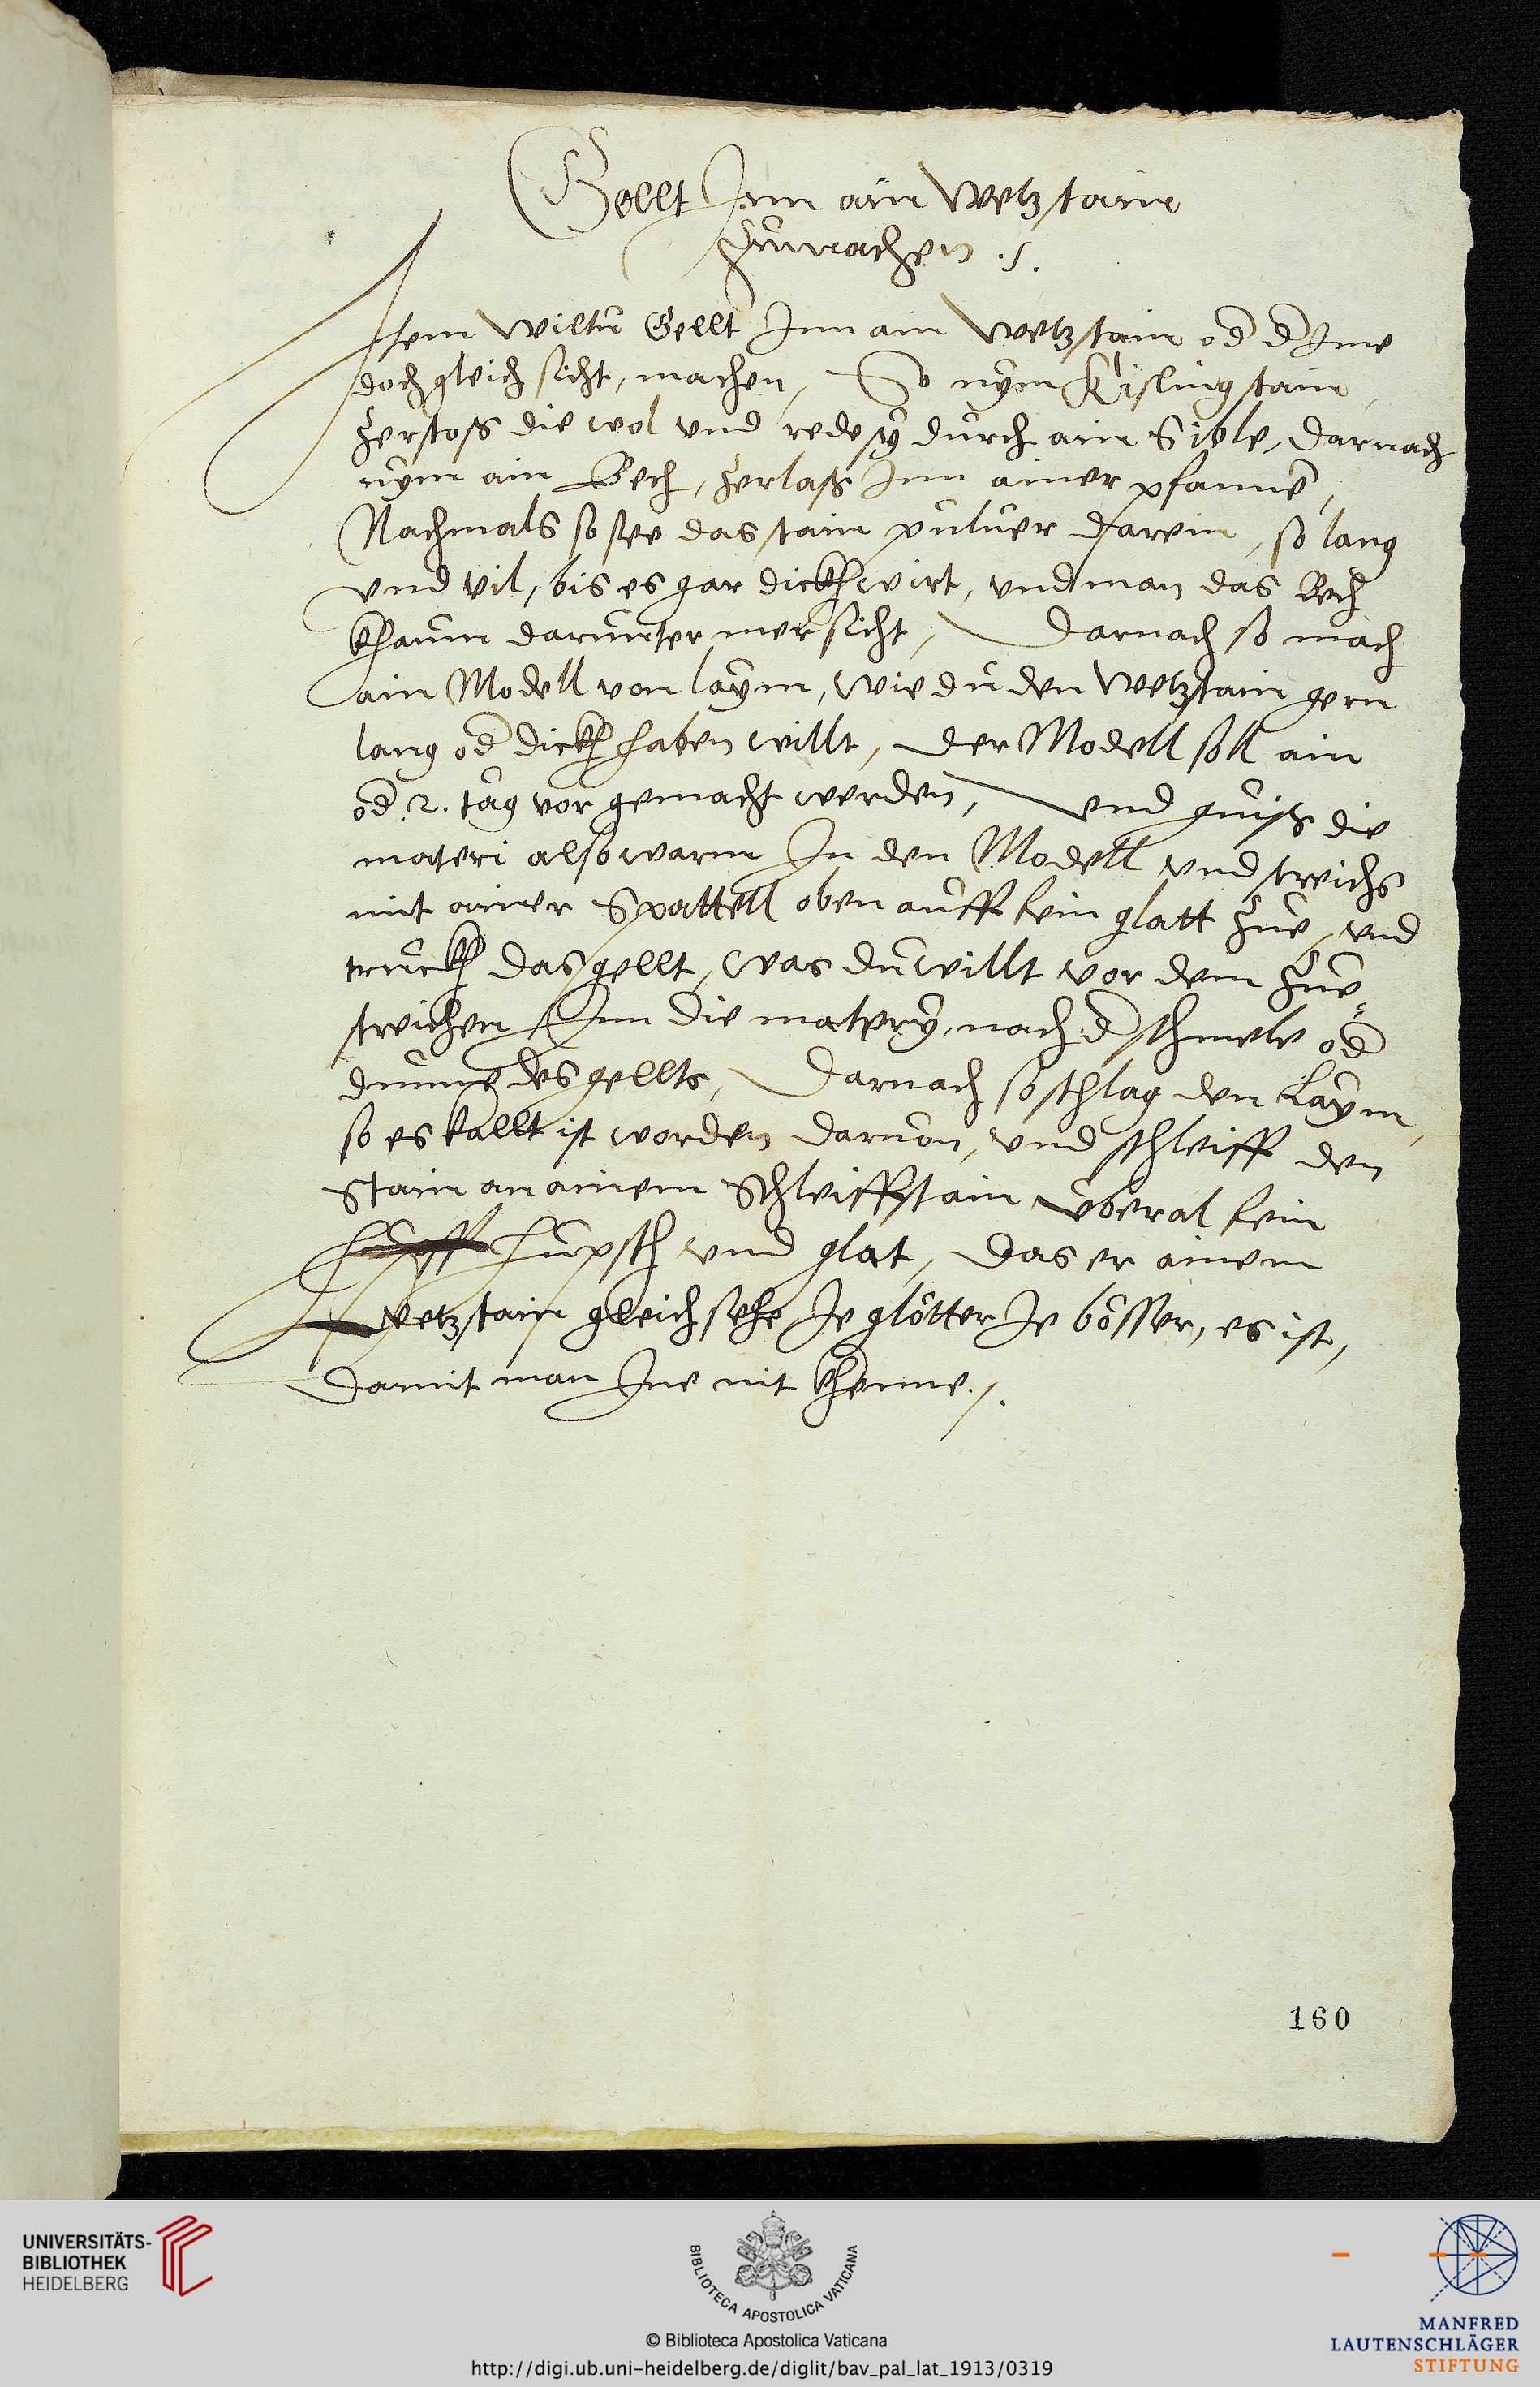 Gellt Jnn ain Wetzstain
zumachen ./.
Jtem wiltu Gellt Jnn ain wetzstain od d Jme
doch gleich sicht, machen, So nym Kisling stain,
zerstoss die wol vnd redes durch ain Sible, darnach
nym ain Bech, zerlass Jnn ainer pfanne,
Nachmals so see das stain puluer darein, so lang
vnd vil, bis es gar dickh wirt, vnd man das Bech
khaum darunter mer sicht, Darnach so mach
ain Modell von laym, wie du den Wetzstain gern
lang od dickh haben willt, der Modell soll ain
od 2. tag vor gemacht werden, vnd guiss die
materi also warm Jn den Modell vnd streichs
mit ainer Spattell oben auff fein glatt zue, vnd
truckh das gellt, was du willt vor dem zue-
streichen Jnn die matery, nach d schmele od
dunne des gellts, Darnach so schlag den Laym,
so es kallt ist worden daruon, vnd schleiff den
Stain an ainem Schleiffstain vberal fein
hupsch vnd glat, das er ainem
wetzstain gleich sehe Je glötter Je bösser, es ist,
damit man Jne nit khenne ./.
160
UNIVERSITÄTS-
BIBLIOTHEK
HEIDELBERG
BIBLIOTECA APOSTOLICA VATICANA
© Biblioteca Apostolica Vaticana
http://digi.ub.uni-heidelberg.de/diglit/bav_pal_lat_1913/0319
MANFRED
LAUTENSCHLÄGER
STIFTUNG